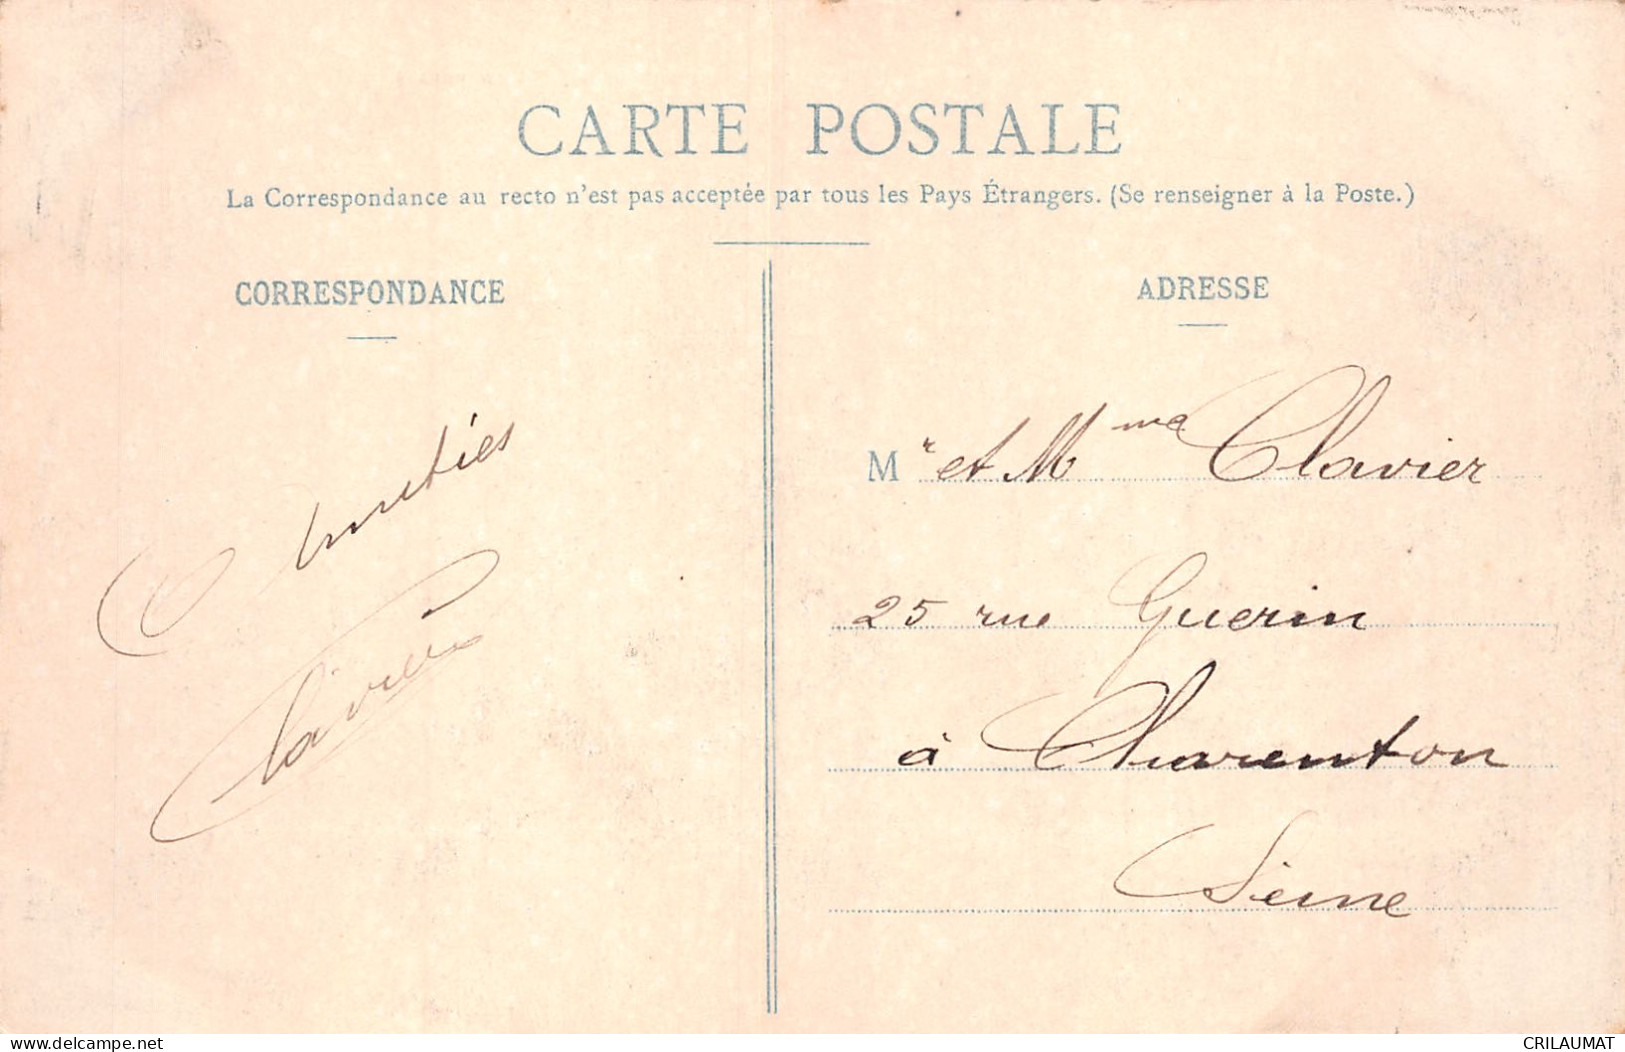 CARTE POSTALE
La Correspondance au recto n'est pas acceptée par tous les Pays Étrangers. (Se renseigner à la Poste.)
CORRESPONDANCE
Amitiés
Clavier
ADRESSE
Mr et Mme Clavier
25 rue Guerin
à Charenton
Seine
www.delcampe.net
CRILAUMAT